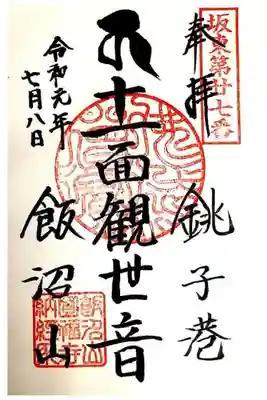 坂東第廿七番
奉拝
銚子港
十一面観世音
令和元年
七月八日
飯沼山
飯沼山
圓福寺